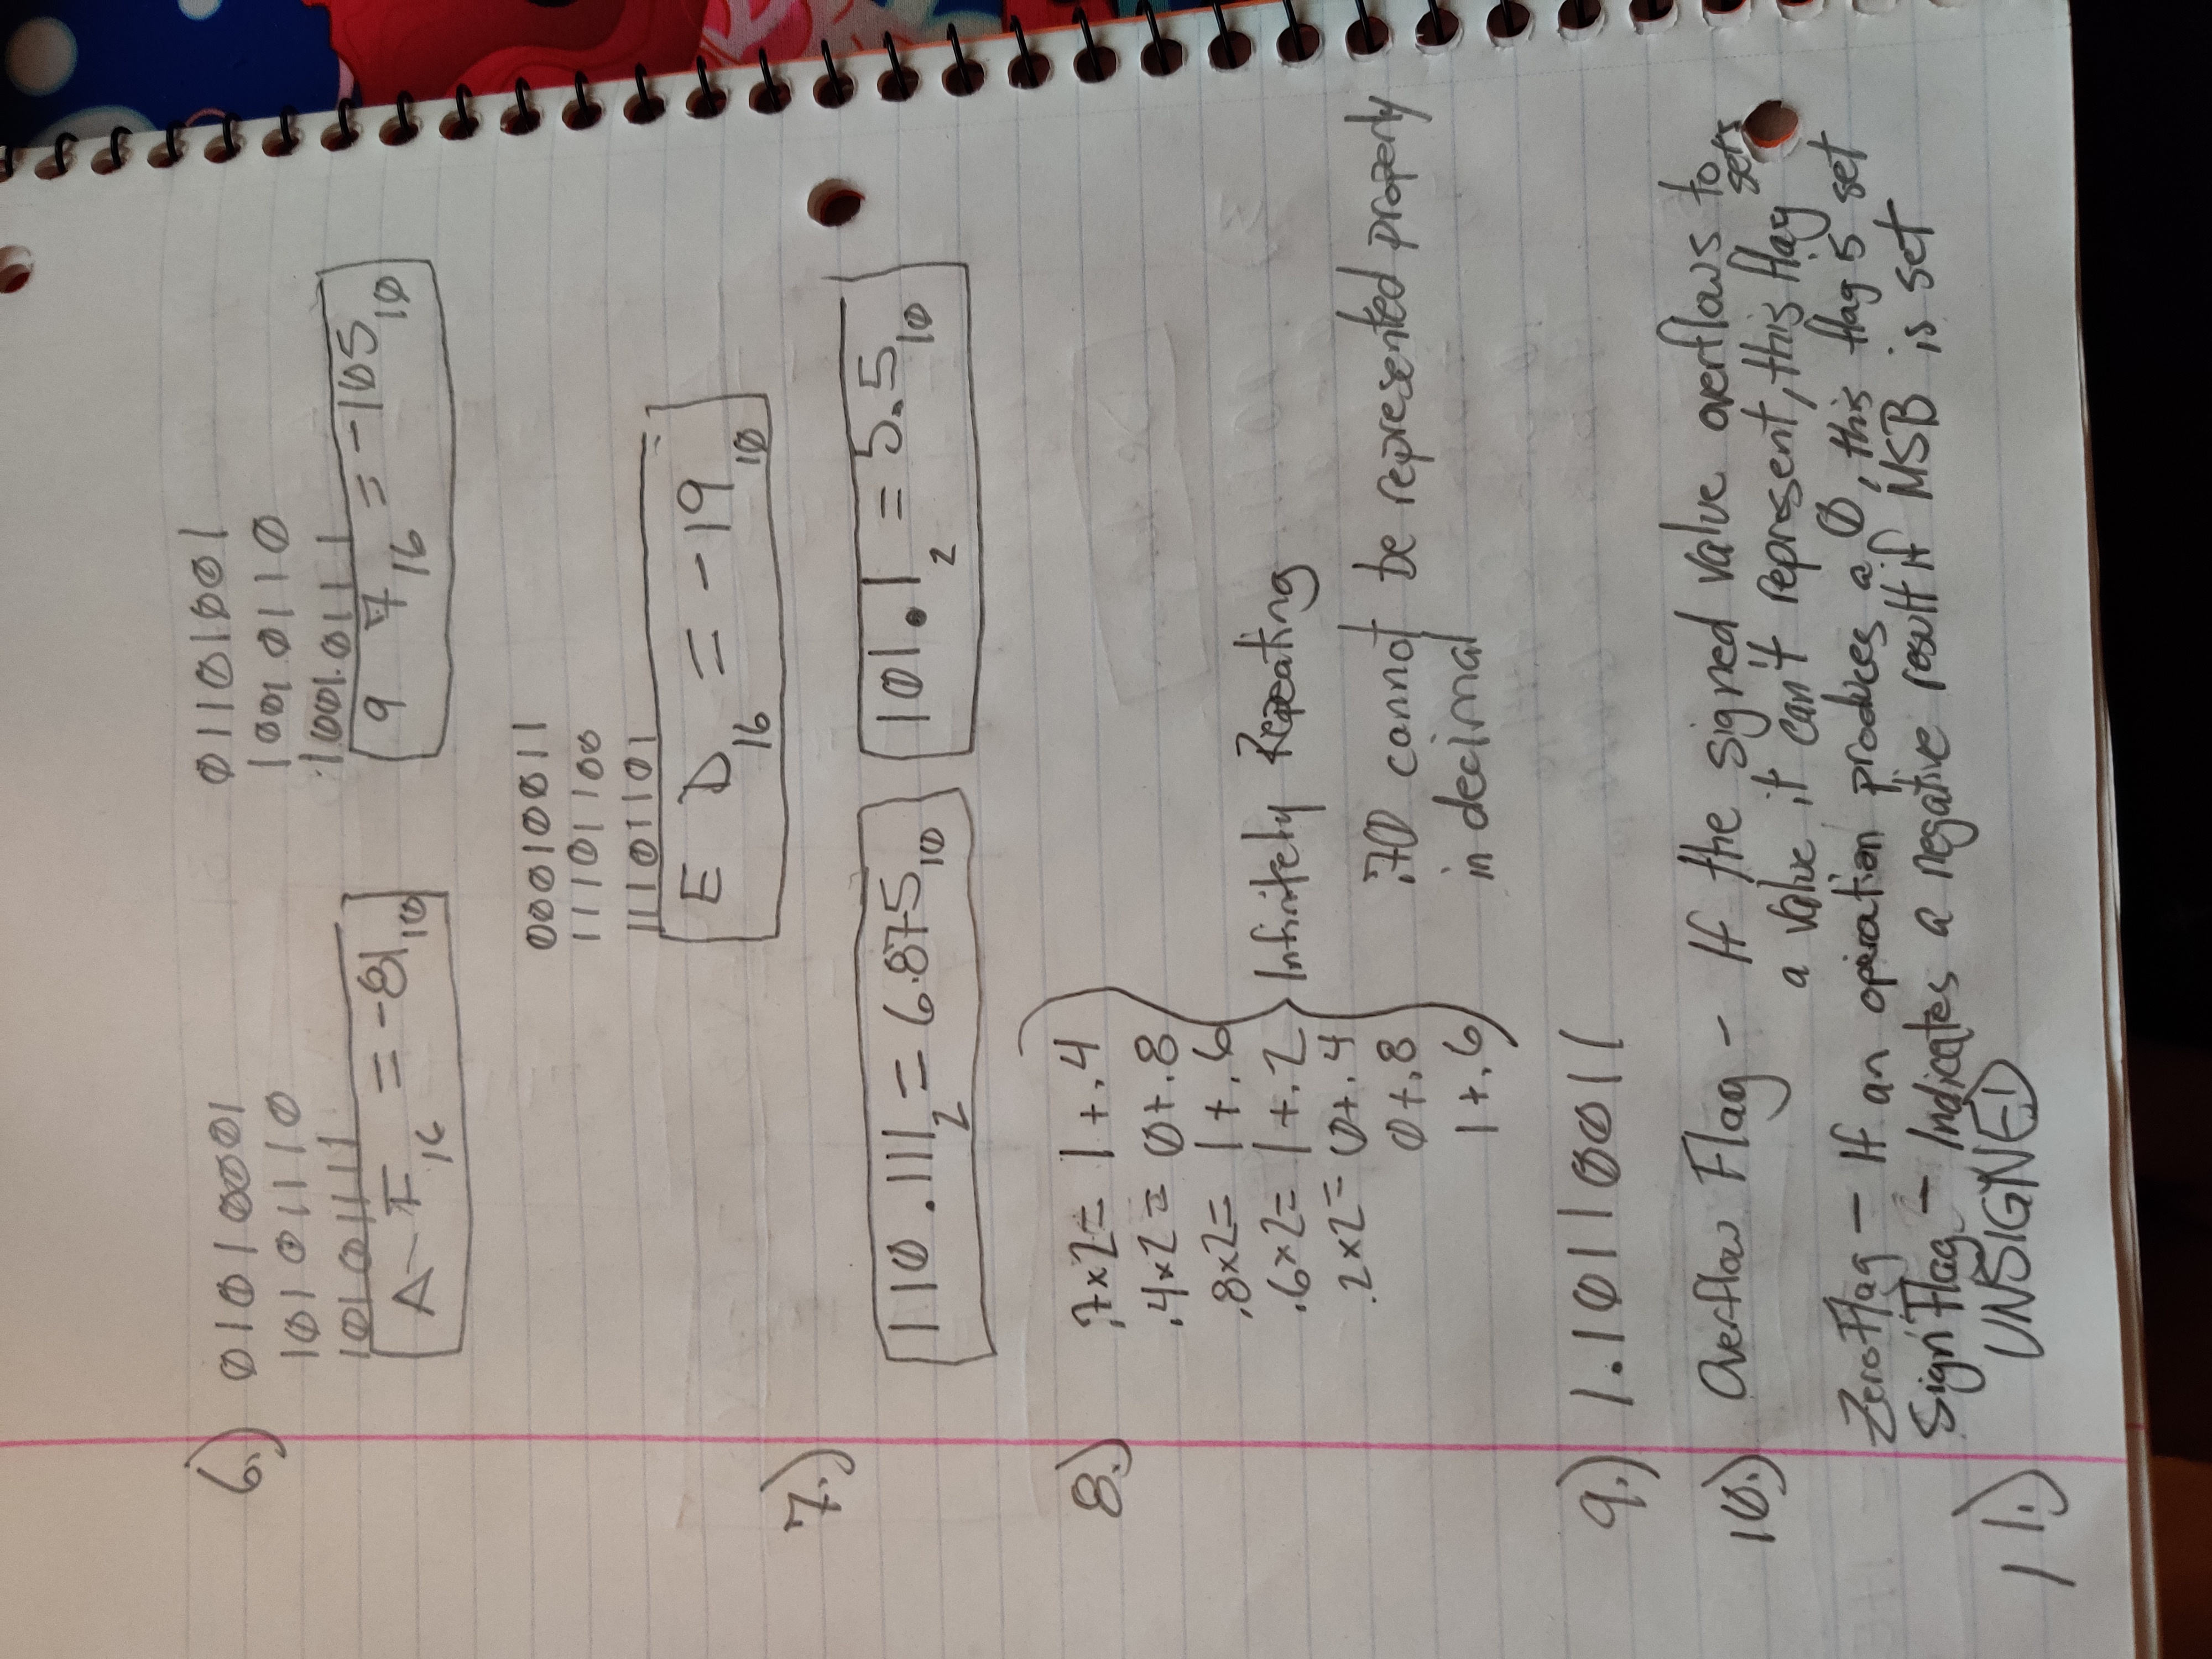 6.) 01010001
10101110
10101111
A F16 = -8110
01101001
10010110
10010111
9 716 = -10510
00010011
11101100
11101101
E D16 = -1910
7.)
110.1112 = 6.87510
101.12 = 5.510
8.) .7x2= 1+.4
.4x2= 0+.8
.8x2= 1+.6
.6x2= 1+.2
.2x2= 0+.4
0+.8
1+.6
Infinitely Repeating
.70 cannot be represented properly
in decimal
9.) 1.10110011
10.) Overflow Flag - If the signed value overflows to
a value it can't represent, this flag sets
Zero Flag - If an operation produces a 0, this flag is set
Sign Flag - Indicates a negative result if MSB is set
11.) UNSIGNED